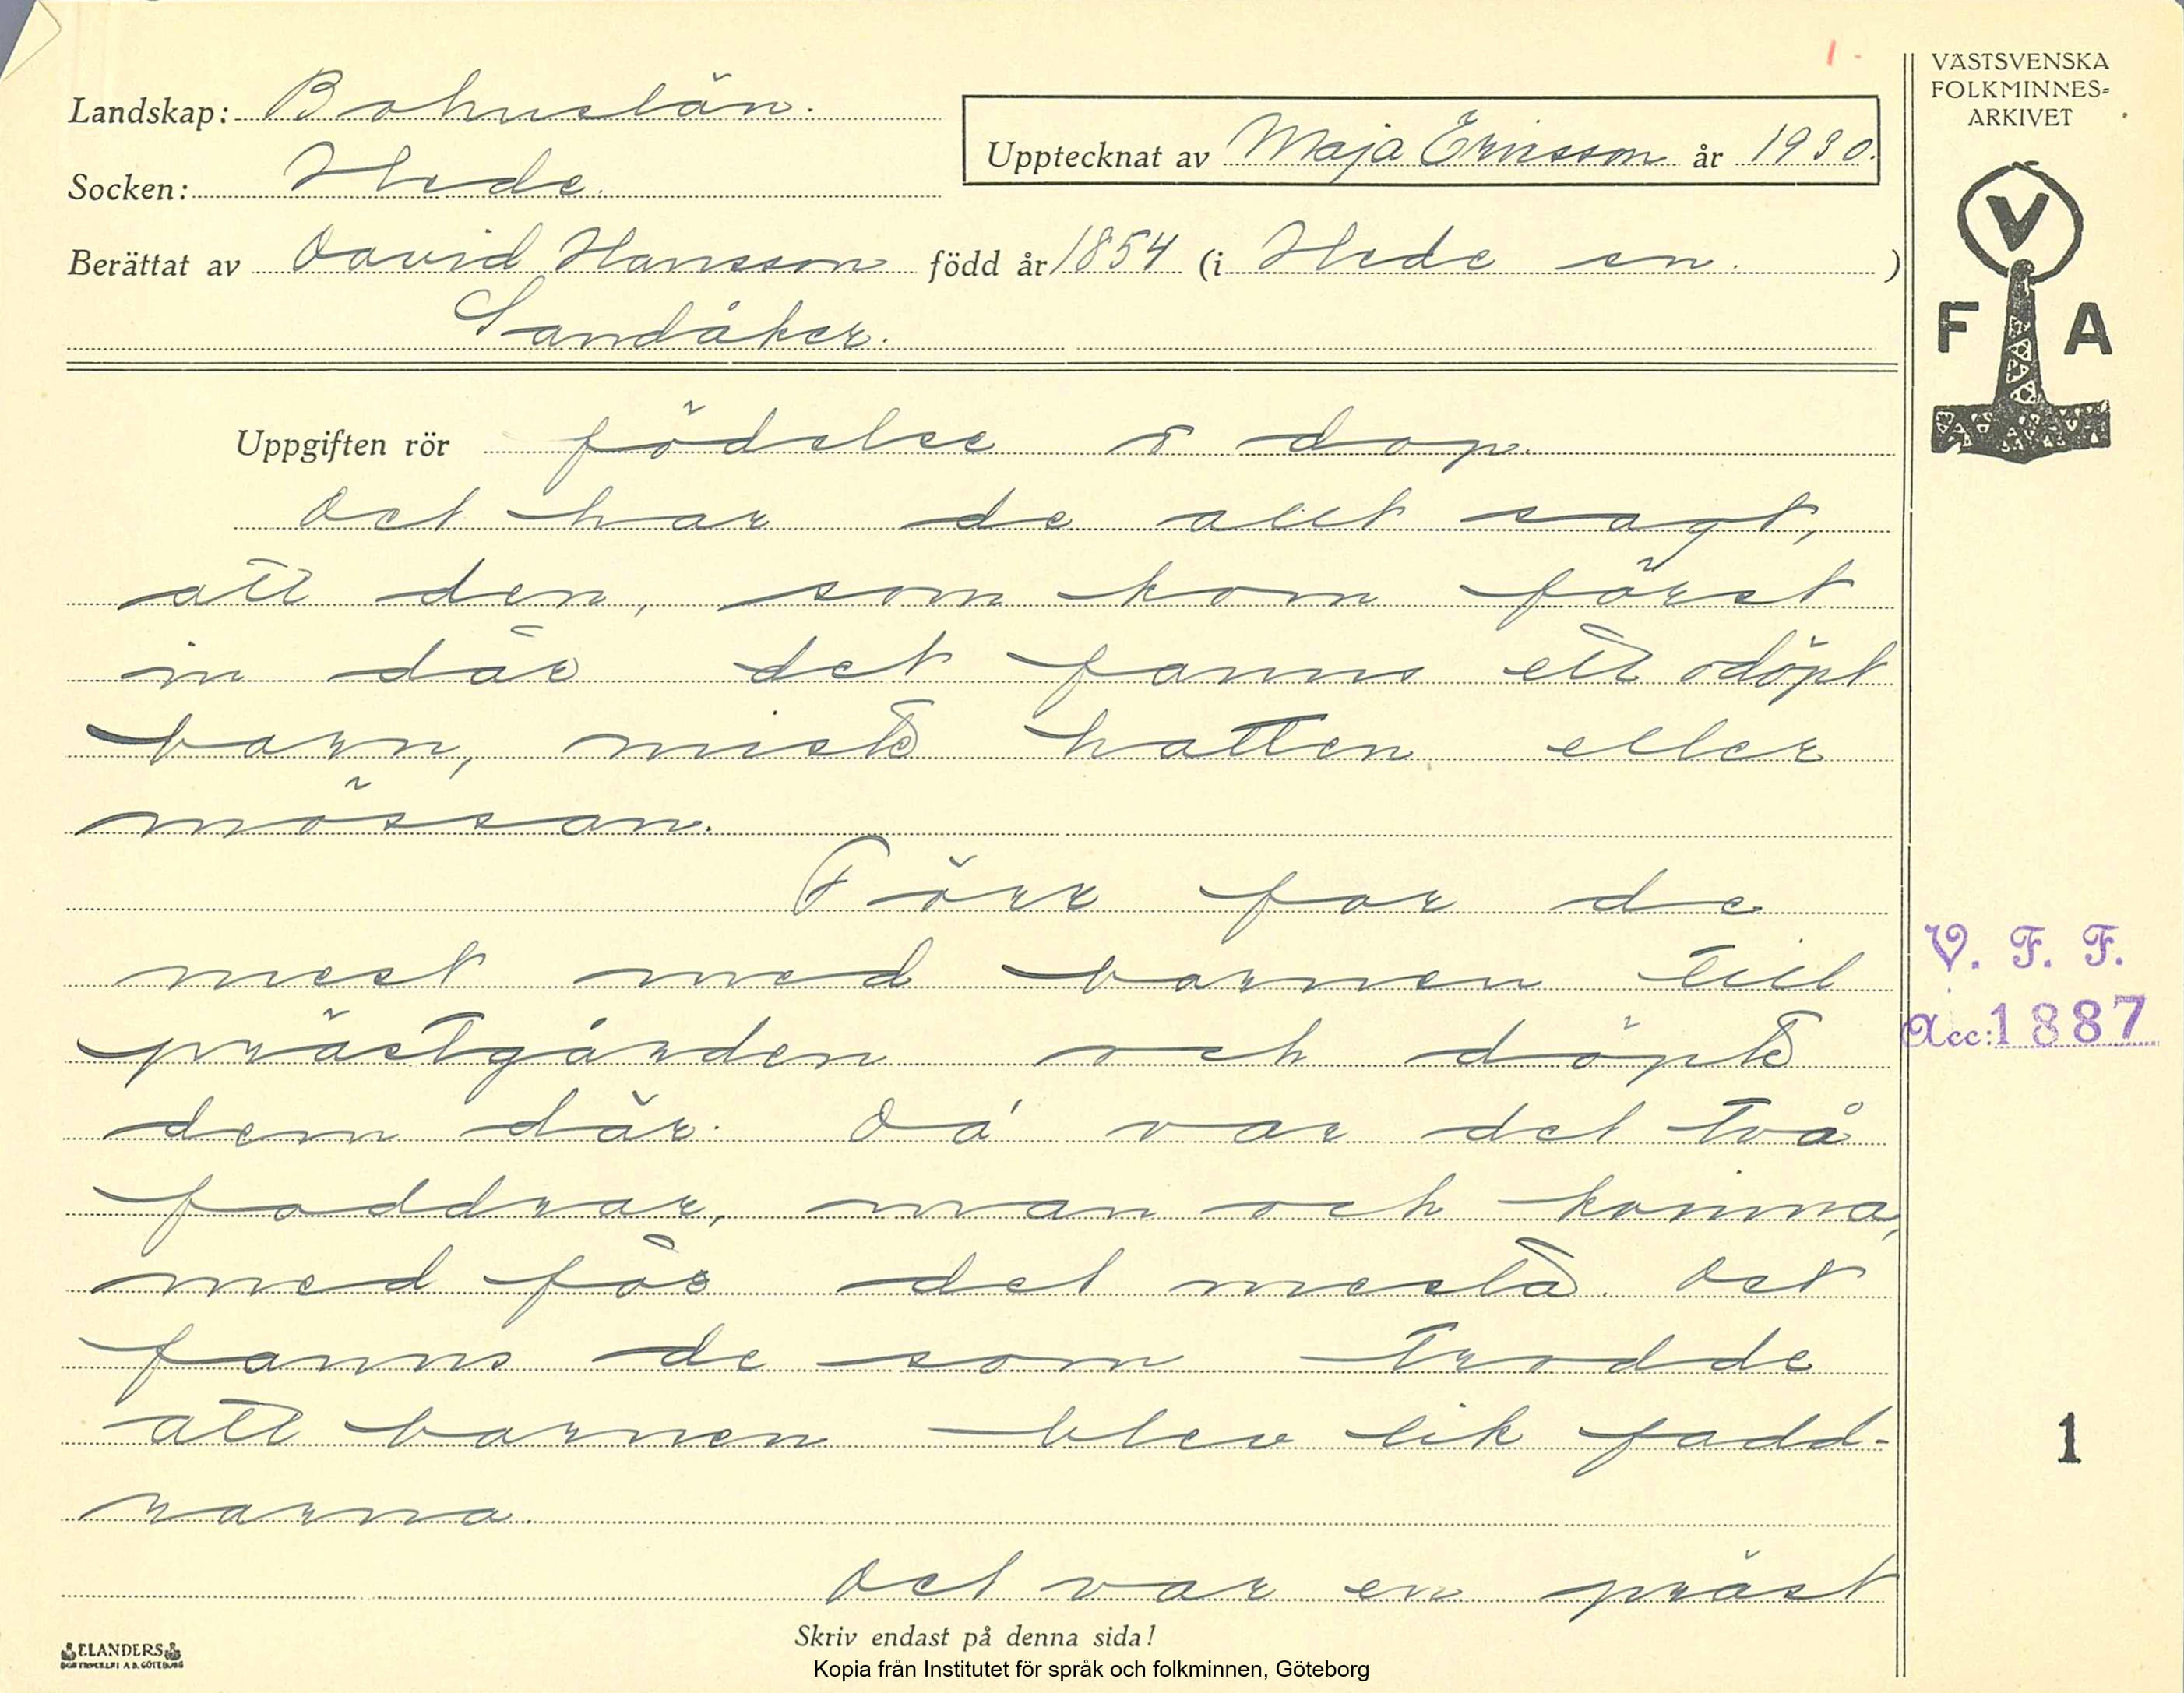 1.
Landskap: Bohuslän.
Socken: Hede.
Upptecknat av Maja Ericsson år 1930.
Berättat av David Hansson född år 1854 (i Hede sn. )
Sandåker.
VÄSTSVENSKA
FOLKMINNES=
ARKIVET
V
F A
Uppgiften rör födelse o dop.
Det har de allt sagt,
att den, som kom först
in där det fanns ett odöpt
barn, miste hatten eller
mössan.
Förr for de
mest med barnen till
prästgården och döpte
dem där. Då var det två
faddrar, man och kvinna,
med för det mesta. Det
fanns de som trodde
att barnen blev lik fadd-
rarna.
Det var en präst
V. F. F.
Acc: 1887
1
Skriv endast på denna sida!
ELANDERS
BOKTRYCKERI A.B. GÖTEBORG
Kopia från Institutet för språk och folkminnen, Göteborg